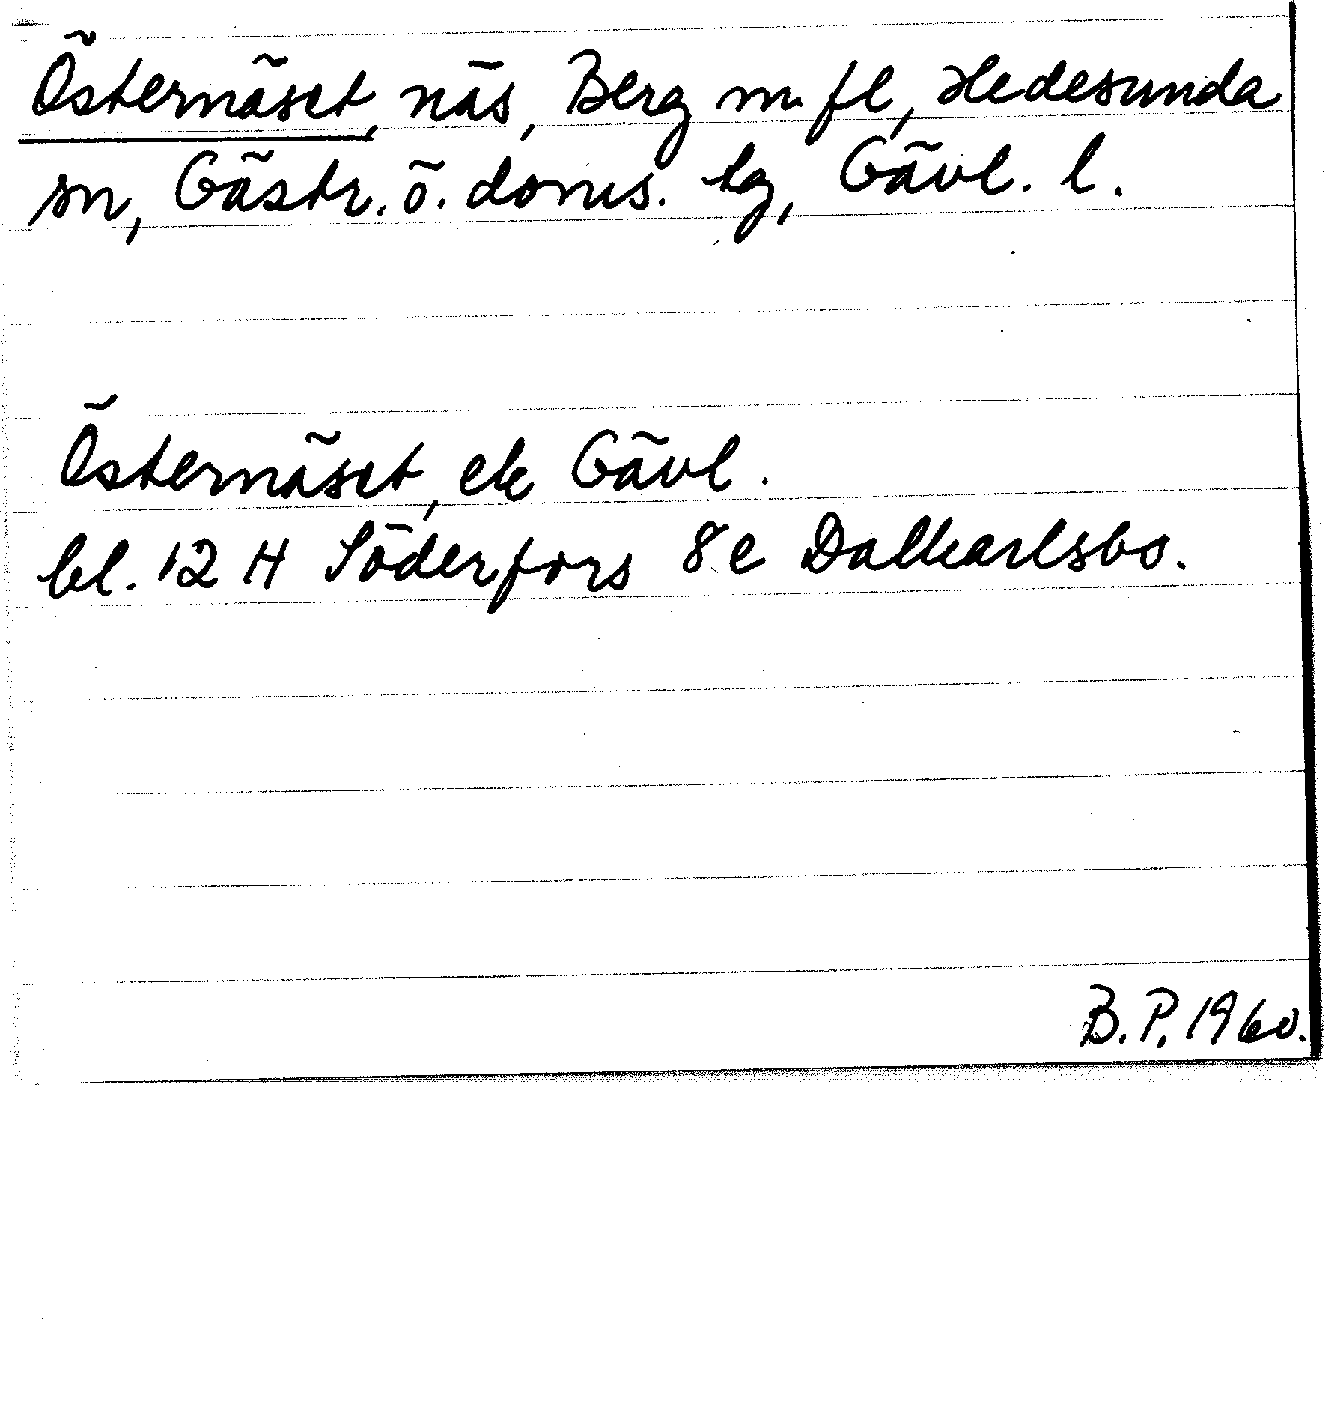 Östernäset, näs, Berg m fl, Hedesunda
sn, Gästr. ö. doms. tg, Gävl. l.
Östernäset, ek Gävl.
bl. 12 H Söderfors 8 e Dalkarlsbo.
B.P. 1960.